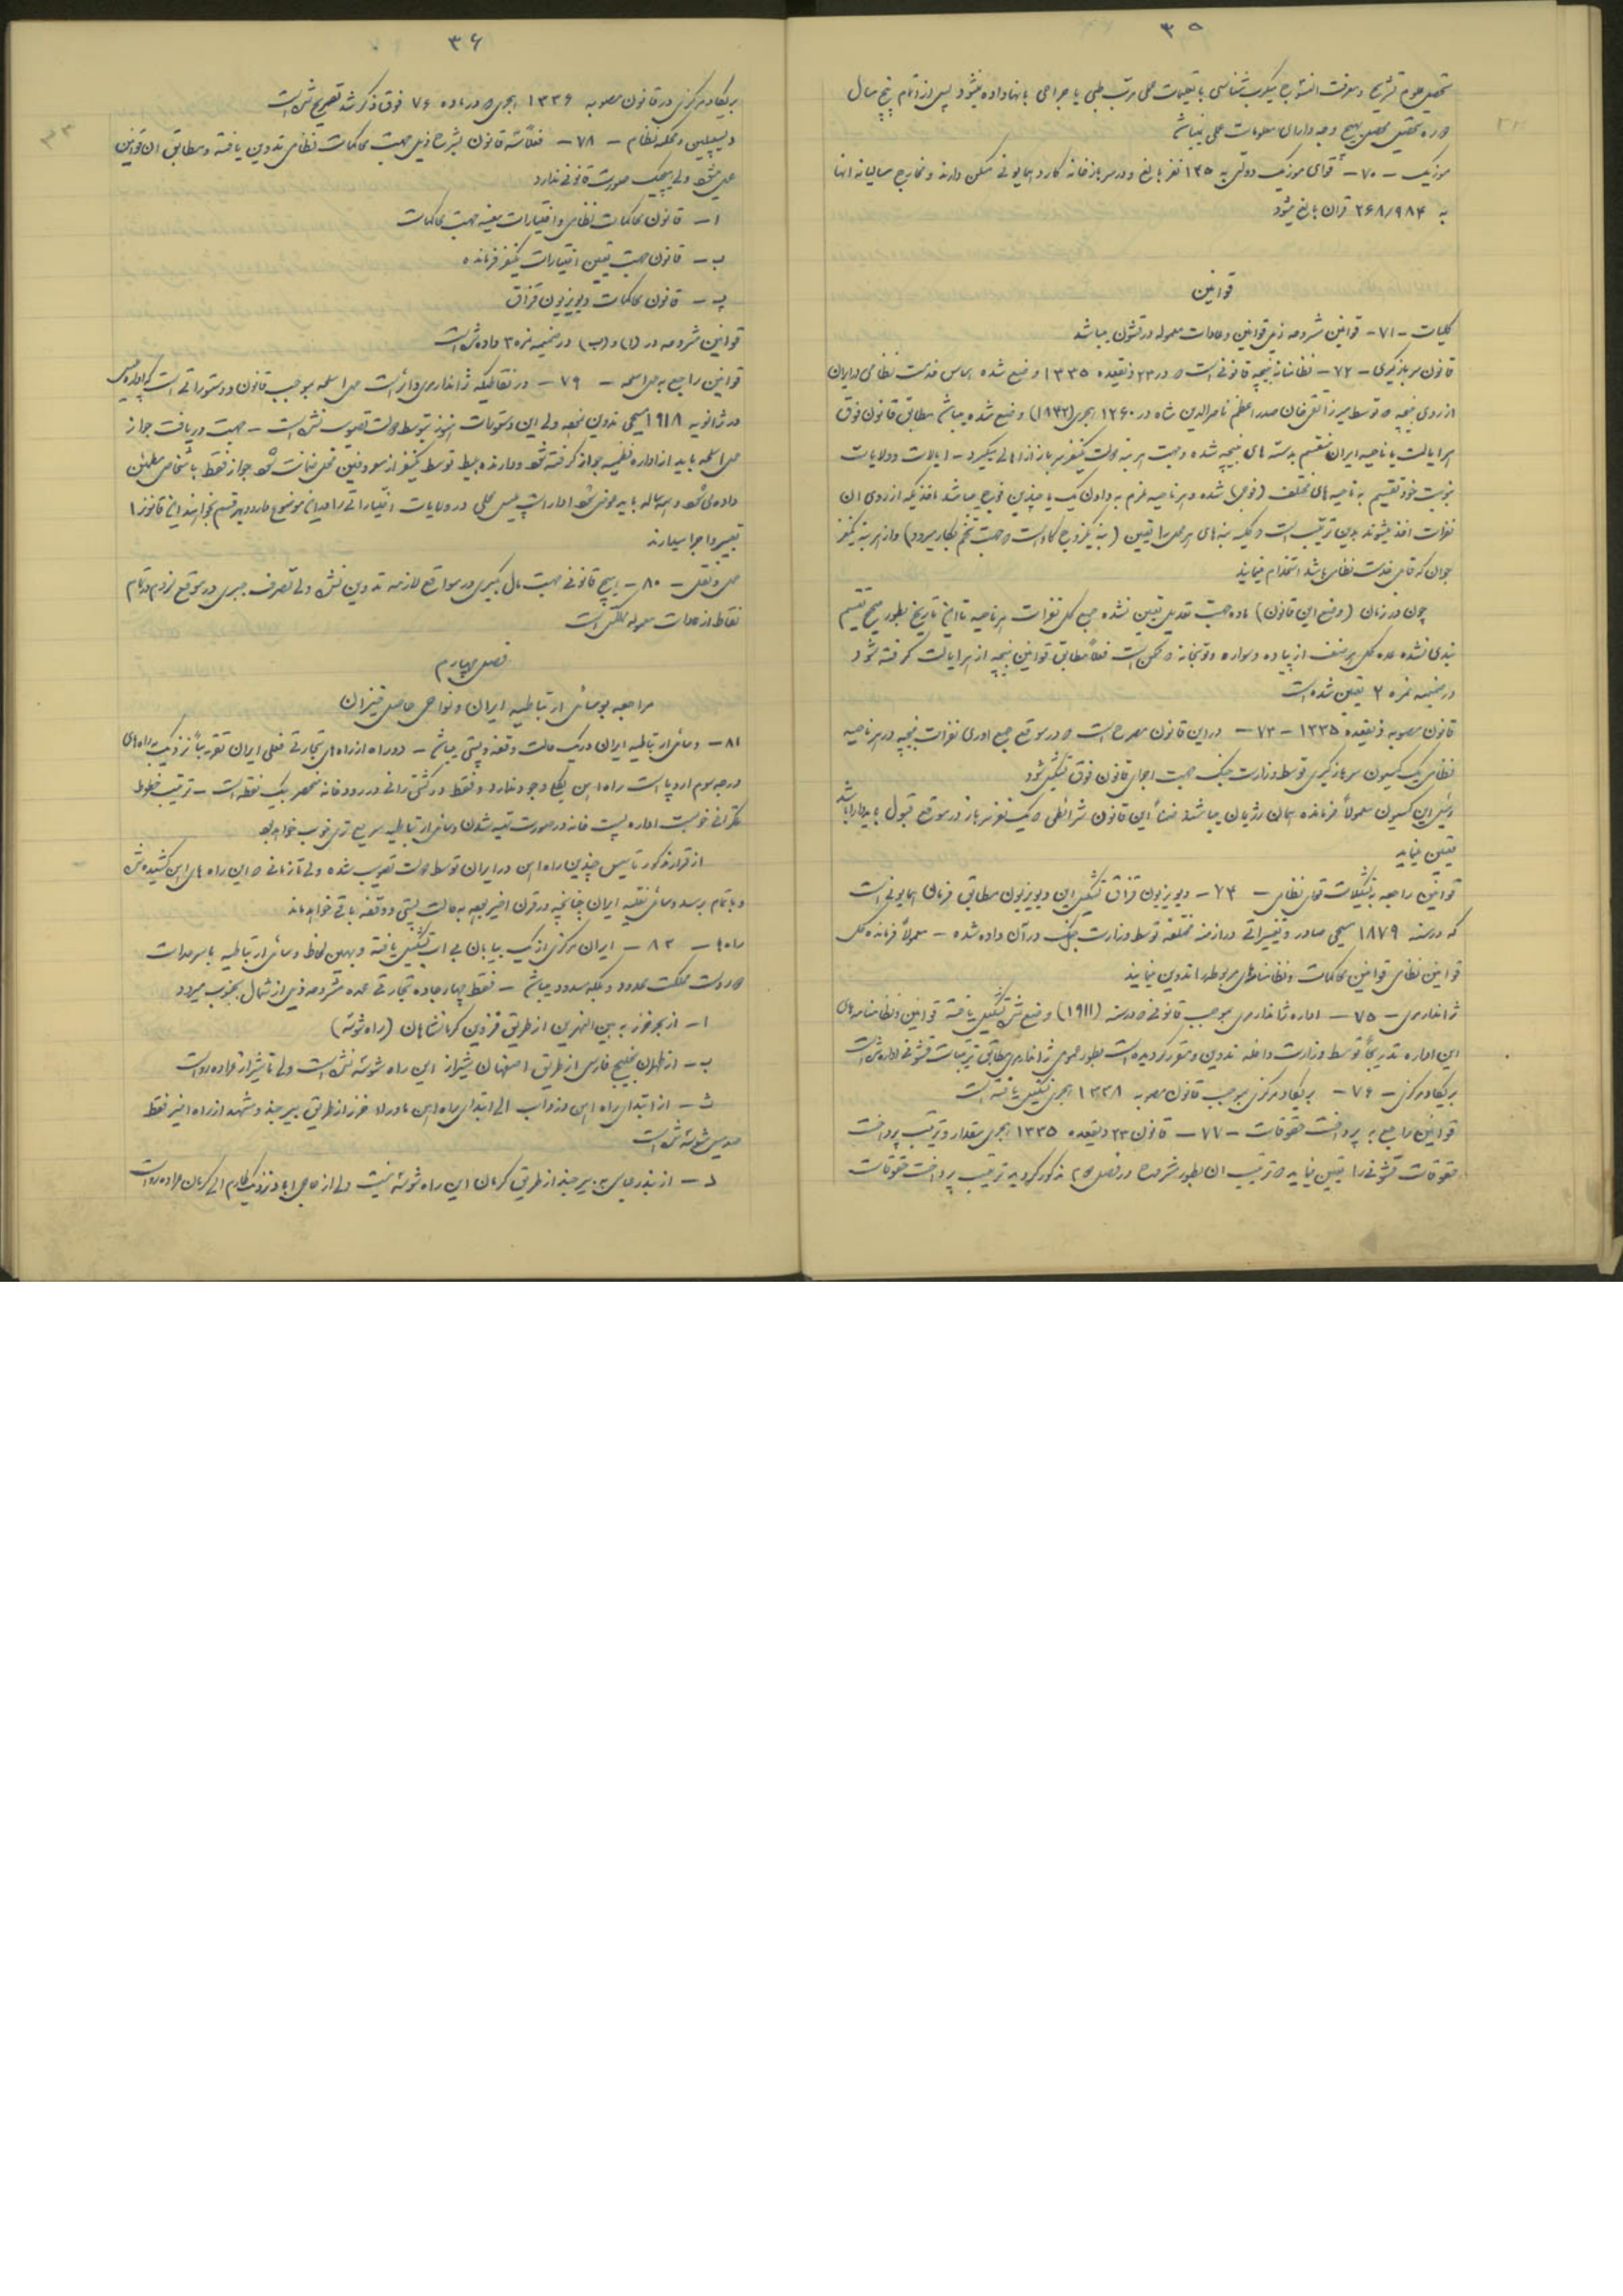 ۳۵
تحصیل علوم تشریح و معرفت میکرب شناسی با تعلیمات عملی مرتب طبی یا جراحی بانها داده نمیشود پس از اتمام پنج سال
دوره تحصیل محصلین بهیچ وجه دارای معلومات عملی نمیباشند
موزیک – ۷۰ – قوای موزیک دولتی به ۱۳۵ نفر بالغ و در سربازخانه گارد همایونی مسکن دارند و مخارج سالیانه انها
به ۲۶۸/۹۸۴ قران بالغ میشود
قوانین
کلیات – ۷۱ – قوانین مشروحه ذیل قوانین و عادات معموله در قشون میباشد
قانون سربازگیری – ۷۲ – نظامنامه بنیچه قانونی است که در ۲۳ ذیقعده ۱۳۳۵ وضع شده اساس خدمت نظامی در ایران
از روی بنیچه که توسط میرزا تقی خان صدر اعظم ناصرالدین شاه در ۱۲۶۰ هجری (۱۸۴۲) وضع شده میباشد مطابق قانون فوق
هر ایالت یا ناحیه ایران منقسم بدسته های بنیچه شده و جهت هر بنیچه دولت یکنفر سرباز از اهالی میگیرد – ایالات و ولایات
بنوبت خود تقسیم به ناحیه های مختلف (فوجی) شده و هر ناحیه ملزم به دادن یک یا چندین فوج میباشد ماخذیکه از روی ان
نفرات اخذ میشوند بدین ترتیب است که بنه های هر محل را تعیین (بنه یکزوج گاو است که جهت تخم بکار میرود) و از هر بنه یکنفر
جوان که قابل خدمت نظامی باشد استخدام مینمایند
چون در زمان (وضع این قانون) ماده جهت تعدیل تعیین نشده جمع کل نفرات هر ناحیه تا این تاریخ بطور صحیح تقسیم
بندی نشده عده کل هر صنف از پیاده و سواره و توپخانه که ممکن است فعلاً مطابق قوانین بنیچه از هر ایالت گرفته شود
در ضمیمه نمره ۲ تعیین شده است
قانون مصوبه ذیقعده ۱۳۳۵ – ۷۳ – در این قانون مصرح است که در موقع جمع اوری نفرات بنیچه در هر ناحیه
نظامی یک کمیسیون سربازگیری توسط وزارت جنگ جهت اجرای قانون فوق تشکیل شود
رئیس این کمیسیون معمولاً فرمانده همان رژیمان میباشد ضمناً این قانون شرائطی که یکنفر سرباز در موقع قبول باید دارا باشد
تعیین مینماید
قوانین راجعه به تشکیلات قوای نظامی – ۷۴ – دیویزیون قزاق تشکیل این دیویزیون مطابق فرمان همایونی است
که در سنه ۱۸۷۹ مسیحی صادر و تغییراتی در ازمنه مختلفه توسط وزارت جنگ در آن داده شده – معمولاً فرمانده کل
قوانین نظامی قوانین محاکمات و نظامنامهای مربوطه را تدوین مینمایند
ژاندارمری – ۷۵ – اداره ژاندارمری بموجب قانونی که در سنه (۱۹۱۱) وضع شده تشکیل یافته قوانین و نظامنامه های
این اداره بتدریج توسط وزارت داخله تدوین و مقرر گردیده است بطور عموم ژاندارمری مطابق ترتیبات قشونی اداره شده است
بریگاد مرکزی – ۷۶ – بریگاد مرکزی بموجب قانون مصوبه ۱۳۳۸ هجری تشکیل یافته است
قوانین راجع به پرداخت حقوقات – ۷۷ – قانون ۲۳ ذیقعده ۱۳۳۵ هجری مقدار و ترتیب پرداخت
حقوقات قشونی را تعیین مینماید که ترتیب ان بطور مشروح در فصل مذکور گردید ترتیب پرداخت حقوقات
۳۶
بریگاد مرکزی در قانون مصوبه ۱۳۳۶ هجری که در ماده ۷۶ فوق ذکر شد تصریح شده است
دیسپلین و محکمه نظام – ۷۸ – فعلاً سه قانون بشرح ذیل جهت محاکمات نظامی تدوین یافته و مطابق ان قوانین
عمل میشود ولی هیچیک صورت قانونی ندارد
ا – قانون محاکمات نظامی و اختیارات معینه جهت محاکمات
ب – قانون جهت تعیین اختیارات یکنفر فرمانده
پ – قانون محاکمات دیویزیون قزاق
قوانین مشروحه در (ا) و (ب) در ضمیمه نمره ۳ داده شده است
قوانین راجع به حمل اسلحه – ۷۹ – در نقاطیکه ژاندارمری دائر است حمل اسلحه بموجب قانون و دستوراتی است که اداره پلیس
در ژانویه ۱۹۱۸ مسیحی تدوین نموده ولی این دستورات هنوز توسط دولت تصویب نشده است – جهت دریافت جواز
حمل اسلحه باید از اداره نظمیه جواز گرفته شود و دارنده بلیط توسط یکنفر از معروفین محل ضمانت شود جواز فقط باشخاص مطمئن
داده میشود و همه ساله باید عوض شود ادارات پلیس محلی در ولایات اختیاراتی را در این موضوع دارد و بهر قسم بخواهند این قانون را
تعبیر و اجرا میدارند
حمل و نقل – ۸۰ – هیچ قانونی جهت مال بگیری در مواقع لازمه تدوین نشده ولی تصرف جبری در موقع لزوم در تمام
نقاط از عادات معموله مملکتی است
فصل چهارم
مراجعه بوسائل ارتباطیه ایران و نواحی حاصل خیز ان
۸۱ – وسائل ارتباطیه ایران در یک حالت وقفه و پستی میباشد – دو راه از راه های تجارتی فعلی ایران تقریباً نزدیک به راه های
درجه سوم اروپا است راه اهن بکلی وجود ندارد و فقط در کشتی رانی در رودخانه منحصر بیک نقطه است – ترتیب خطوط
تلگرافی خوبست اداره پست خانه در صورت تهیه شدن وسائل ارتباطیه سریع تری خوب خواهد بود
از قرار مذکور تاسیس چندین راه اهن در ایران توسط دولت تصویب شده ولی تا زمانی که این راه های اهن کشیده شده
و باتمام برسد وسائل نقلیه ایران چنانچه در قرن اخیر بوده به حالت پستی و وقفه باقی خواهد ماند
راهها – ۸۲ – ایران مرکزی از یک بیابان بی اب تشکیل یافته و بهمین لحاظ وسائل ارتباطیه با سرحدات
دوردست مملکت محدود و بلکه مسدود میباشد – فقط چهار جاده تجارتی عمده مشروحه ذیل از شمال بجنوب میرود
ا – از بحر خزر به بین النهرین از طریق قزوین کرمانشاهان (راه شوسه)
ب – از طهران بخلیج فارس از طریق اصفهان شیراز این راه شوسه نشده است ولی تا شیراز عراده رو است
ث – از ابتدای راه اهن دزداب الی ابتدای راه اهن ماوراء خزر از طریق بیرجند و مشهد از راه اخیر فقط
میل شوسه شده است
د – از بندر عباس به بیرجند از طریق کرمان این راه شوسه نیست ولی از حاجی اباد نزدیک طارم الی کرمان عراده رو است